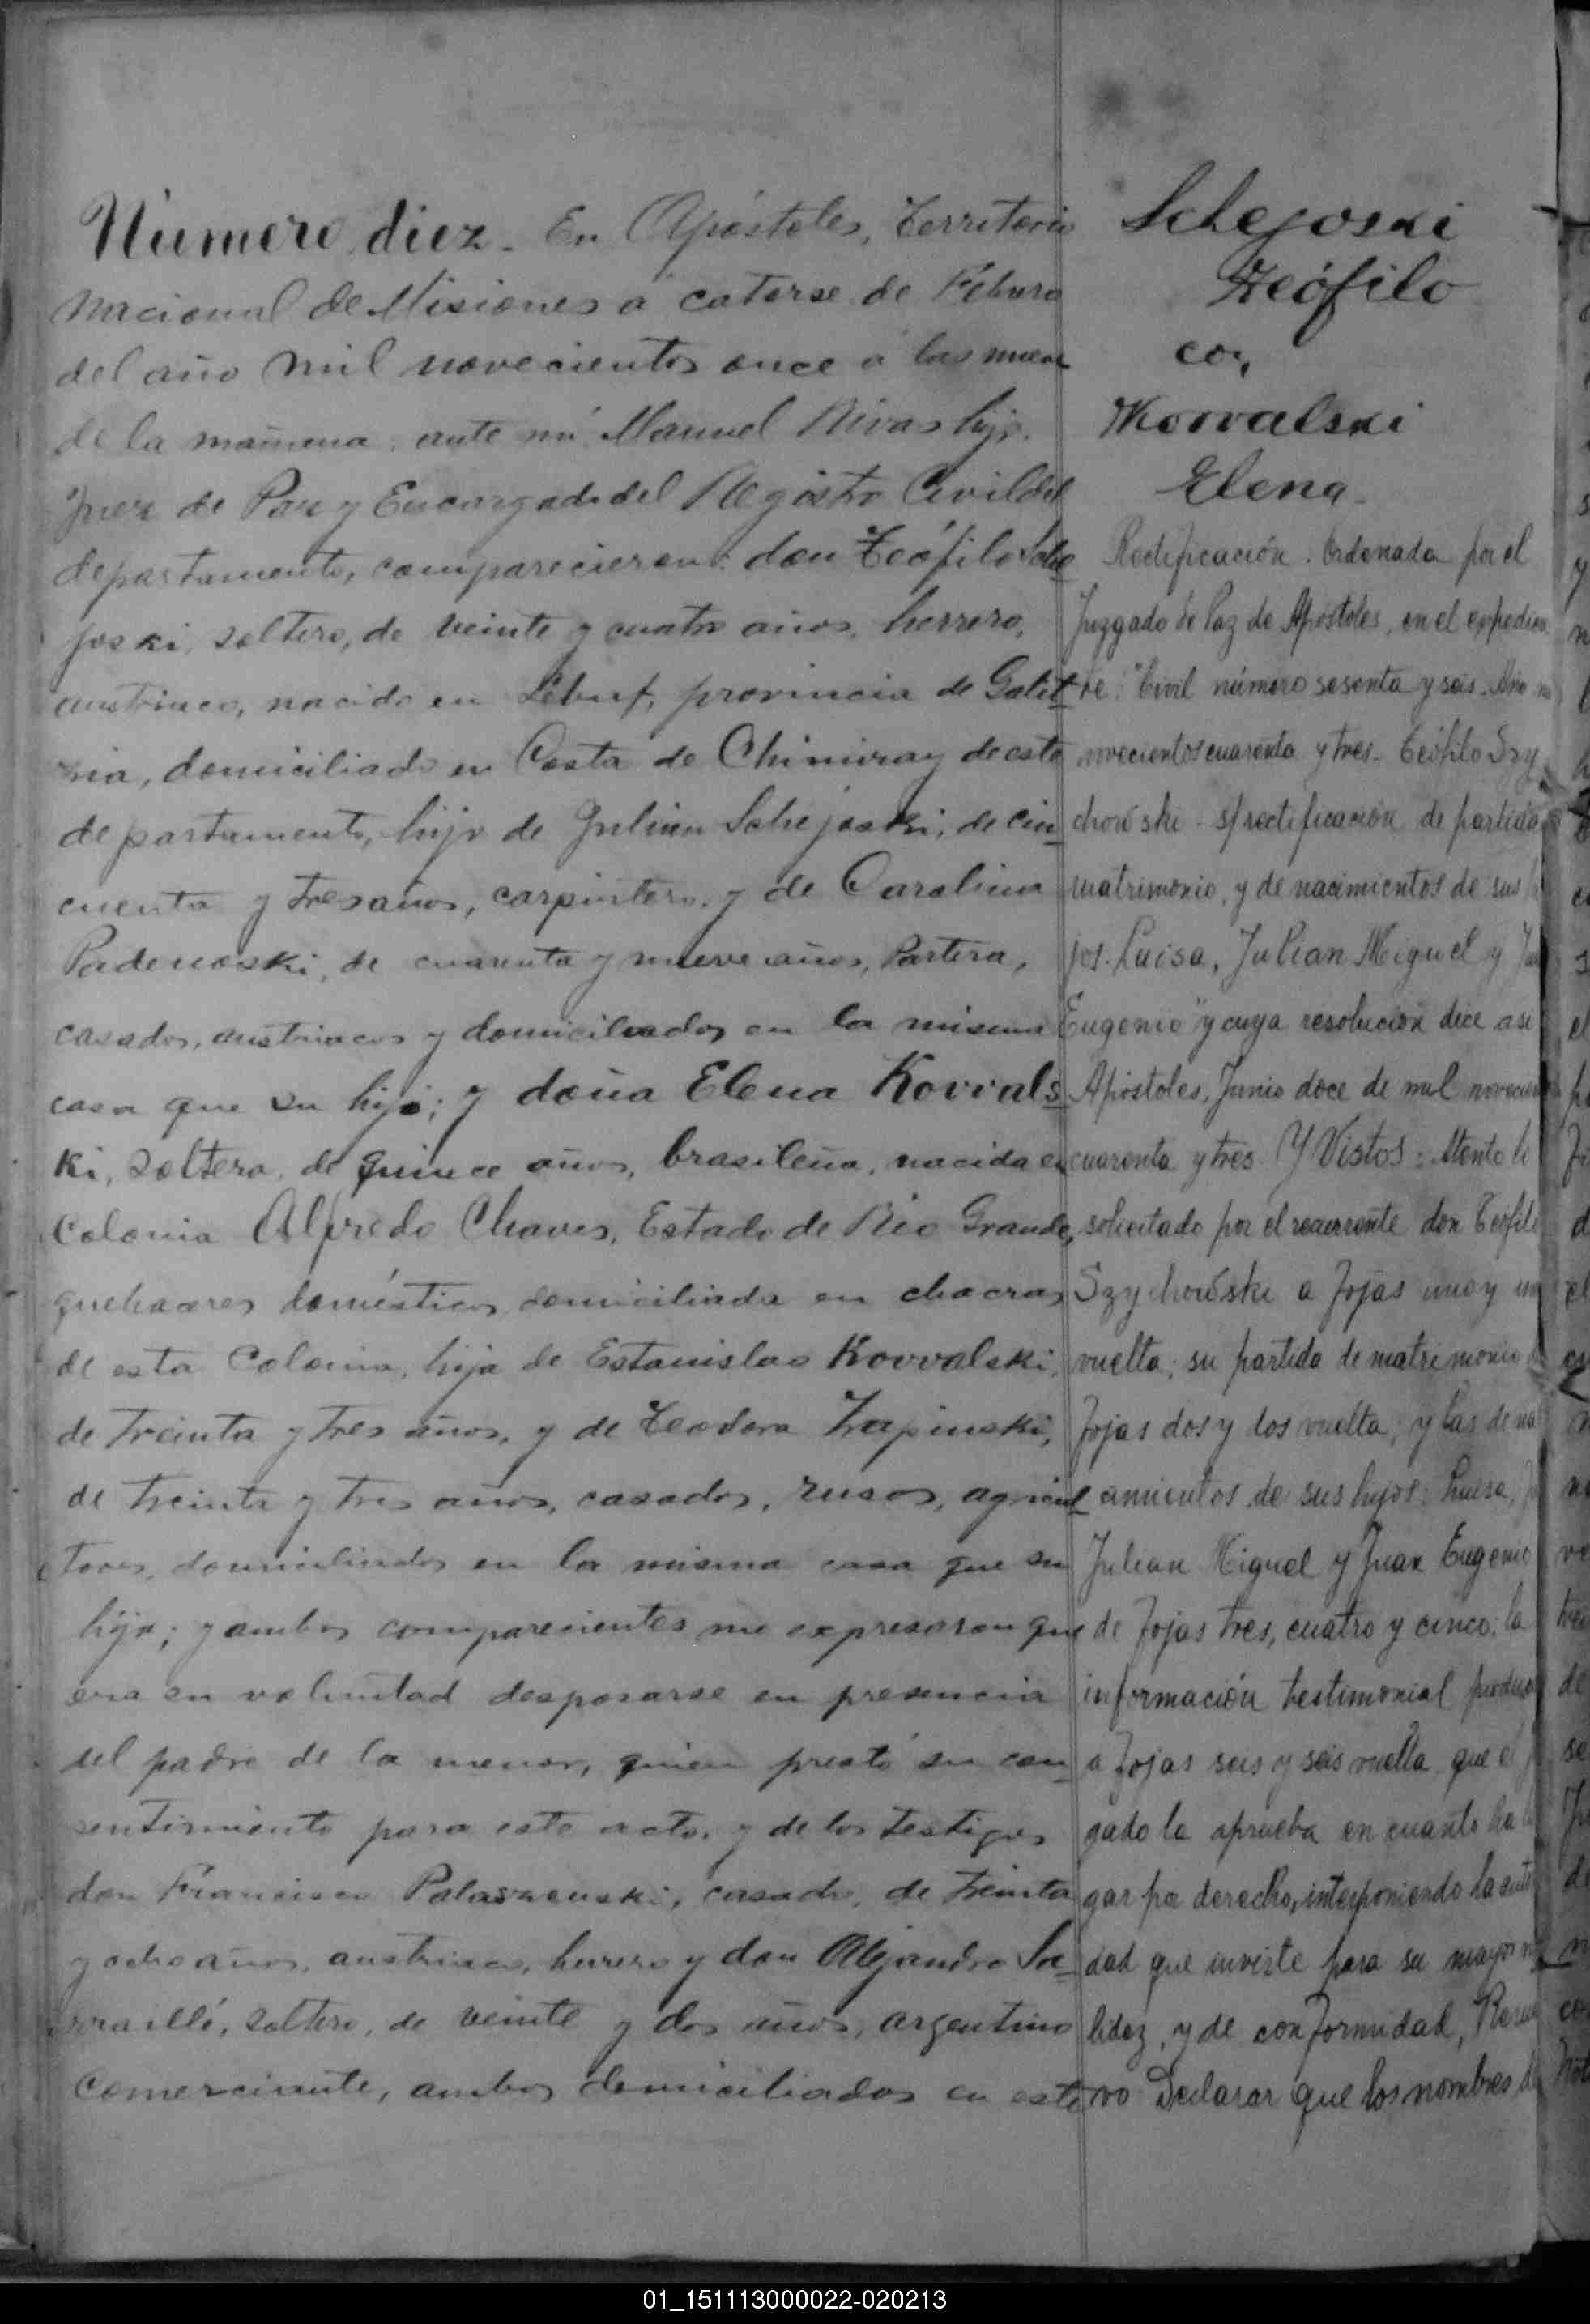 Número diez. En Apóstoles, Territorio
Nacional de Misiones á catorse de Febrero
del año mil novecientos once á las nueve
de la mañana, ante mi Manuel Rivas hijo.
Juez de Paz y Encargado del Registro Civil del
departamento, comparecieron: don Teófilo Sche
joski, soltero, de veinte y cuatro años, herrero,
austriaco, nacido en provincia de Galit
zia, domiciliado en Costa de Chimiray de este
departamento, hijo de Julian Schejoski, de cin
cuenta y tres años, carpintero, y de Carolina
de cuarenta y nueve años, Partera,
casados, austriacos y domiciliados en la misma
casa que su hijo; y doña Elena Kovvals
ki, soltera, de quince años, brasileña, nacida en
Colonia Alfredo Chaves, Estado de Rio Grande,
quehaceres domésticos, domiciliada en chacras
de esta Colonia, hija de Estanislao Kovvalski,
de treinta y tres años, y de Teodora
de treinta y tres años, casados, rusos, agricul
tores, domiciliados en la misma casa que su
hija; y ambos comparecientes me expresaron que
era su voluntad desposarse en presencia
del padre de la menor, quien prestó su con
sentimiento para este acto, y de los testigos
don Francisco casado, de treinta
y ocho años, austriaco, herrero y don Alejandro
soltero, de veinte y dos años, argentino
Comerciante, ambos domiciliados en este
Schejoski
Teófilo
con
Kowalski
Elena
Rectificación. Ordenada por el
Juzgado de Paz de Apóstoles, en el expedien
te: "Civil número sesenta y seis. Año
novecientos cuarenta y tres. Teófilo Szy
chowski - s/rectificación de partida
matrimonio, y de nacimientos de sus
jos. Luisa, Julian Miguel y
Eugenio" y cuya resolución dice asi
Apóstoles, Junio doce de mil
cuarenta y tres. Y Vistos: Atento lo
solicitado por el recurrente don Teófilo
Szychowski a fojas uno y
vuelta; su partida de matrimonio
fojas dos y dos vuelta; y las de na
cimientos de sus hijos: Luisa,
Julian Miguel y Juan Eugenio
de fojas tres, cuatro y cinco; la
información testimonial
a fojas seis y seis vuelta que el
gado la aprueba en cuanto ha
gar por derecho, interponiendo la
dad que inviste para su mayor
lidez, y de conformidad,
vo Declarar que los nombres
01_151113000022-020213